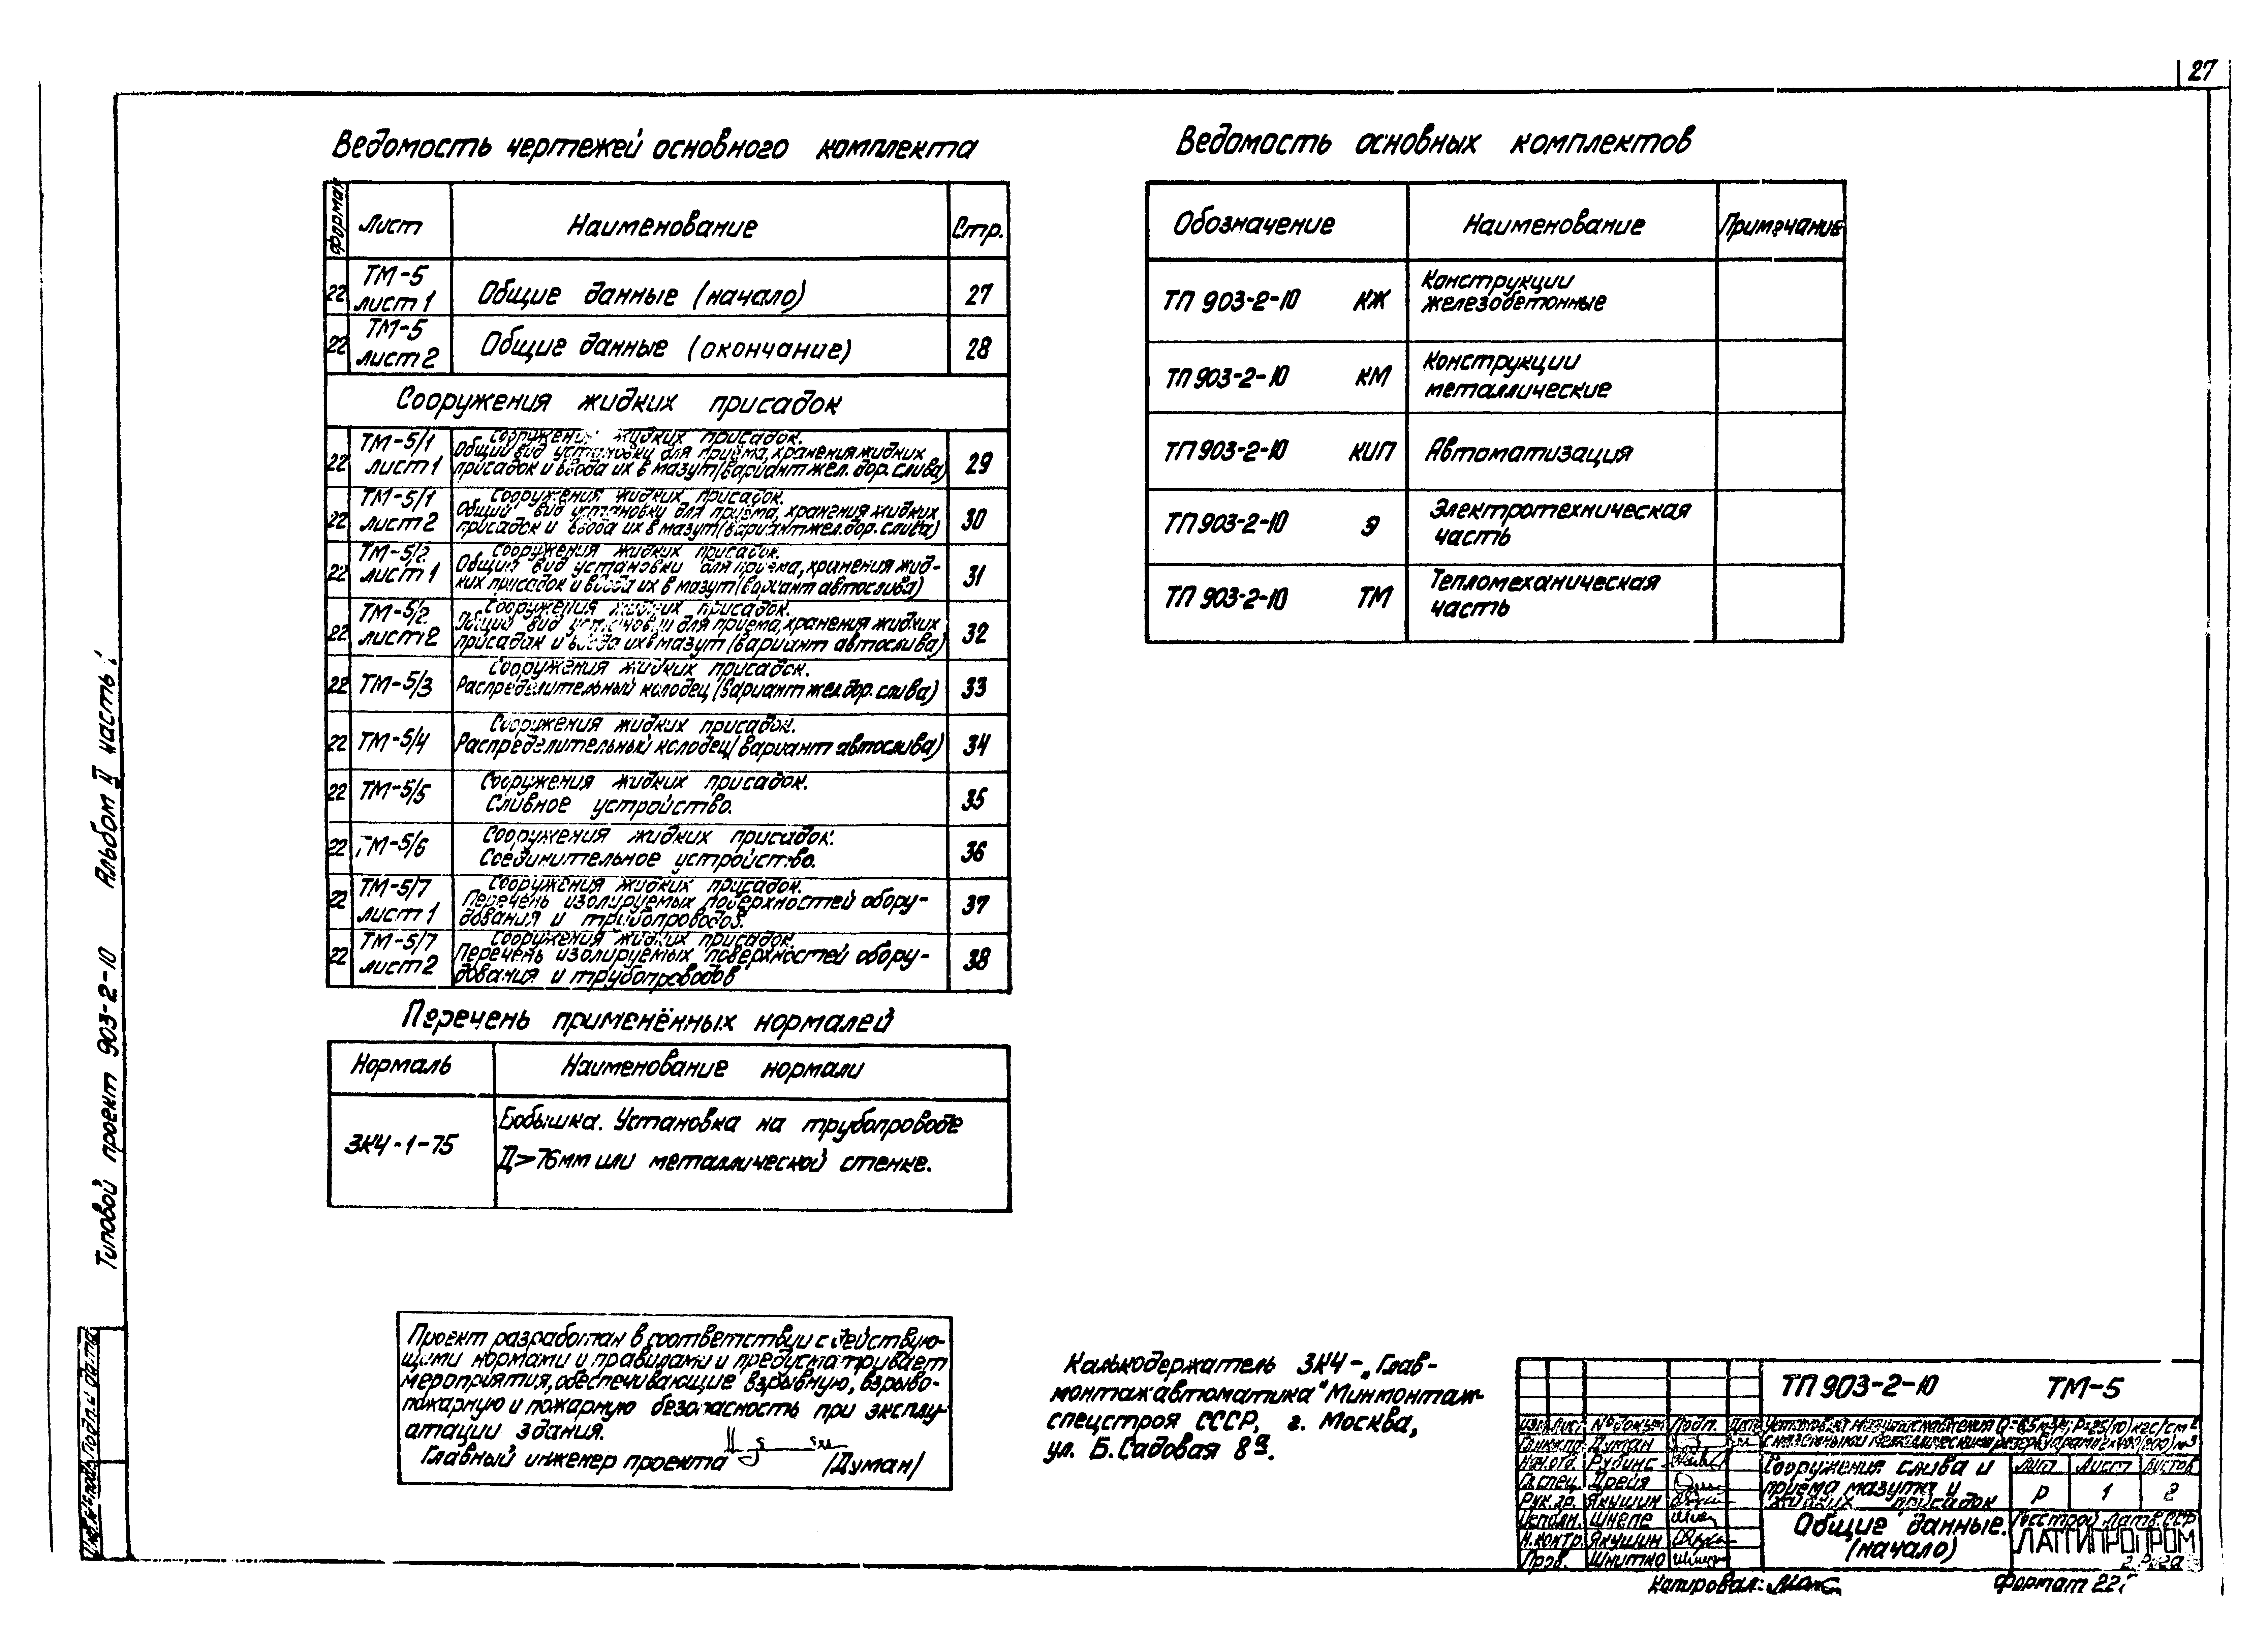 27
Ведомость чертежей основного комплекта
Формат Лист Наименование Стр.
22 ТМ-5 лист 1 Общие данные (начало) 27
22 ТМ-5 лист 2 Общие данные (окончание) 28
Сооружения жидких присадок
22 ТМ-5/1 лист 1 Сооружения жидких присадок.
Общий вид установки для приёма, хранения жидких
присадок и ввода их в мазут (вариант жел. дор. слива) 29
22 ТМ-5/1 лист 2 Сооружения жидких присадок.
Общий вид установки для приёма, хранения жидких
присадок и ввода их в мазут (вариант жел. дор. слива) 30
22 ТМ-5/2 лист 1 Сооружения жидких присадок.
Общий вид установки для приема, хранения жид-
ких присадок и ввода их в мазут (вариант автослива) 31
22 ТМ-5/2 лист 2 Сооружения жидких присадок.
Общий вид установки для приема, хранения жидких
присадок и ввода их в мазут (вариант автослива) 32
22 ТМ-5/3 Сооружения жидких присадок.
Распределительный колодец (вариант жел.дор. слива) 33
22 ТМ-5/4 Сооружения жидких присадок.
Распределительный колодец (вариант автослива) 34
22 ТМ-5/5 Сооружения жидких присадок.
Сливное устройство. 35
22 ТМ-5/6 Сооружения жидких присадок.
Соединительное устройство. 36
22 ТМ-5/7 лист 1 Сооружения жидких присадок.
Перечень изолируемых поверхностей обору-
дования и трубопроводов. 37
22 ТМ-5/7 лист 2 Сооружения жидких присадок.
Перечень изолируемых поверхностей обору-
дования и трубопроводов 38
Перечень применённых нормалей
Нормаль Наименование нормали
ЗК4-1-75 Бобышка. Установка на трубопроводе
Д>76мм или металлической стенке.
Ведомость основных комплектов
Обозначение Наименование Примечание
ТП 903-2-10 КЖ Конструкции
железобетонные
ТП 903-2-10 КМ Конструкции
металлические
ТП 903-2-10 КИП Автоматизация
ТП 903-2-10 Э Электротехническая
часть
ТП 903-2-10 ТМ Тепломеханическая
часть
Типовой проект 903-2-10 Альбом II часть 1
Инв.№подл. Подп. и дата
Проект разработан в соответствии с действую-
щими нормами и правилами и предусматривает
мероприятия, обеспечивающие взрывную, взрыво-
пожарную и пожарную безопасность при эксплу-
атации здания.
Главный инженер проекта /Думан/
Калькодержатель ЗК4-„Глав-
монтажавтоматика" Минмонтаж-
спецстроя СССР, г. Москва,
ул. Б. Садовая 8а.
ТП 903-2-10 ТМ-5
Изм. Лист № докум. Подп. Дата
Установка мазутоснабжения Q=6,5 м³/ч; Р=25(10) кгс/см²
с наземными металлическими резервуарами 2×400(200) м³
Гл.инж.пр. Думан
Нач.отд. Рубинс
Гл.спец. Дрейя
Рук.гр. Якушин
Исполн. Шнепе
Н.контр. Якушин
Пров. Шнитко
Сооружения слива и
приема мазута и
жидких присадок
Лит Лист Листов
Р 1 2
Общие данные.
(начало)
Госстрой Латв.ССР
ЛАТГИПРОПРОМ
г. Рига
Копировал:
Формат 22г